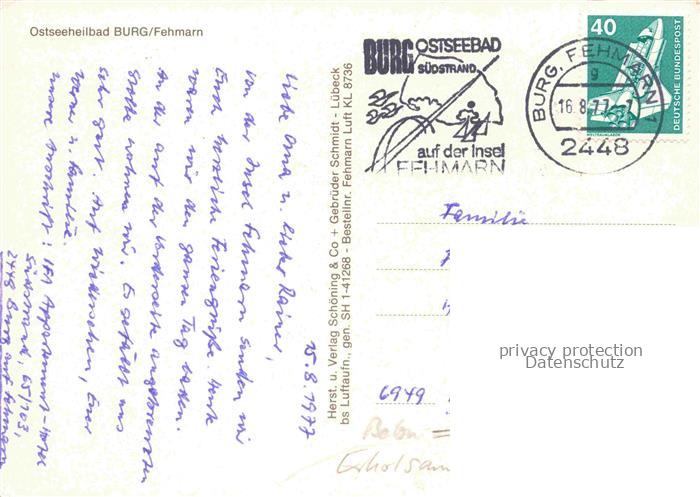 Ostseeheilbad BURG/Fehmarn
15.8.1977
Liebe Oma u. lieber Rainer,
Von der Insel Fehmarn senden wir
Euch herzliche Feriengrüße. Heute
waren wir den ganzen Tag baden.
An der auf der Vorderseite angekreuzten
Stelle wohnen wir. Es gefällt uns
sehr gut. Auf Wiedersehen, Euer
u. Familie.
unsere Anschrift: IFA Appartement-Hotel
Südstrand, 65/103,
2448 Burg auf Fehmarn
Herst. u. Verlag Schöning & Co + Gebrüder Schmidt - Lübeck
bs Luftaufn., gen. SH 1-41268 - Bestellnr. Fehmarn Luft KL 8736
BURG OSTSEEBAD
SÜDSTRAND
auf der Insel
FEHMARN
BURG, FEHMARN 1
g
16.8.77
2448
40
DEUTSCHE BUNDESPOST
WELTRAUMLABOR
Familie
6949
privacy protection
Datenschutz
Erholsam